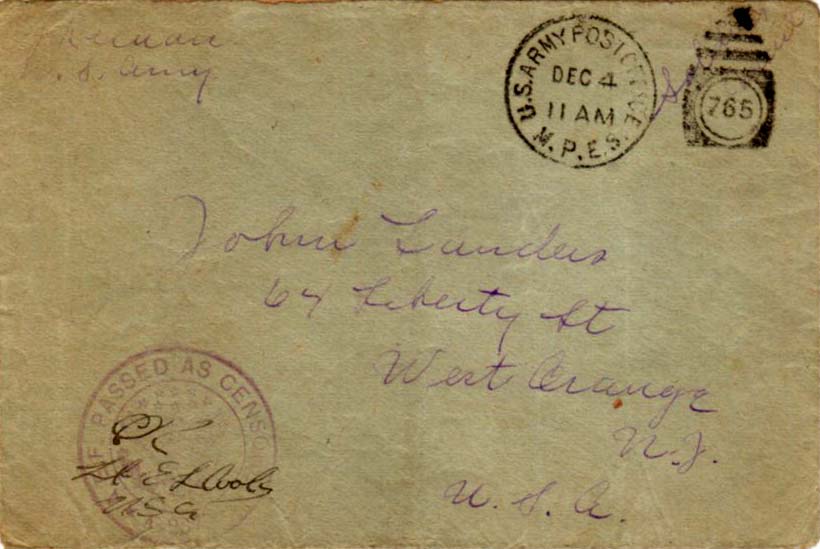 U. S. Army
U.S. ARMY POST OFFICE
DEC 4
11 AM
M.P.E.S.
765
John Landers
64 Liberty St
West Orange
N. J.
U. S. A.
PASSED AS CENSORED
OK
Lt E L
USA